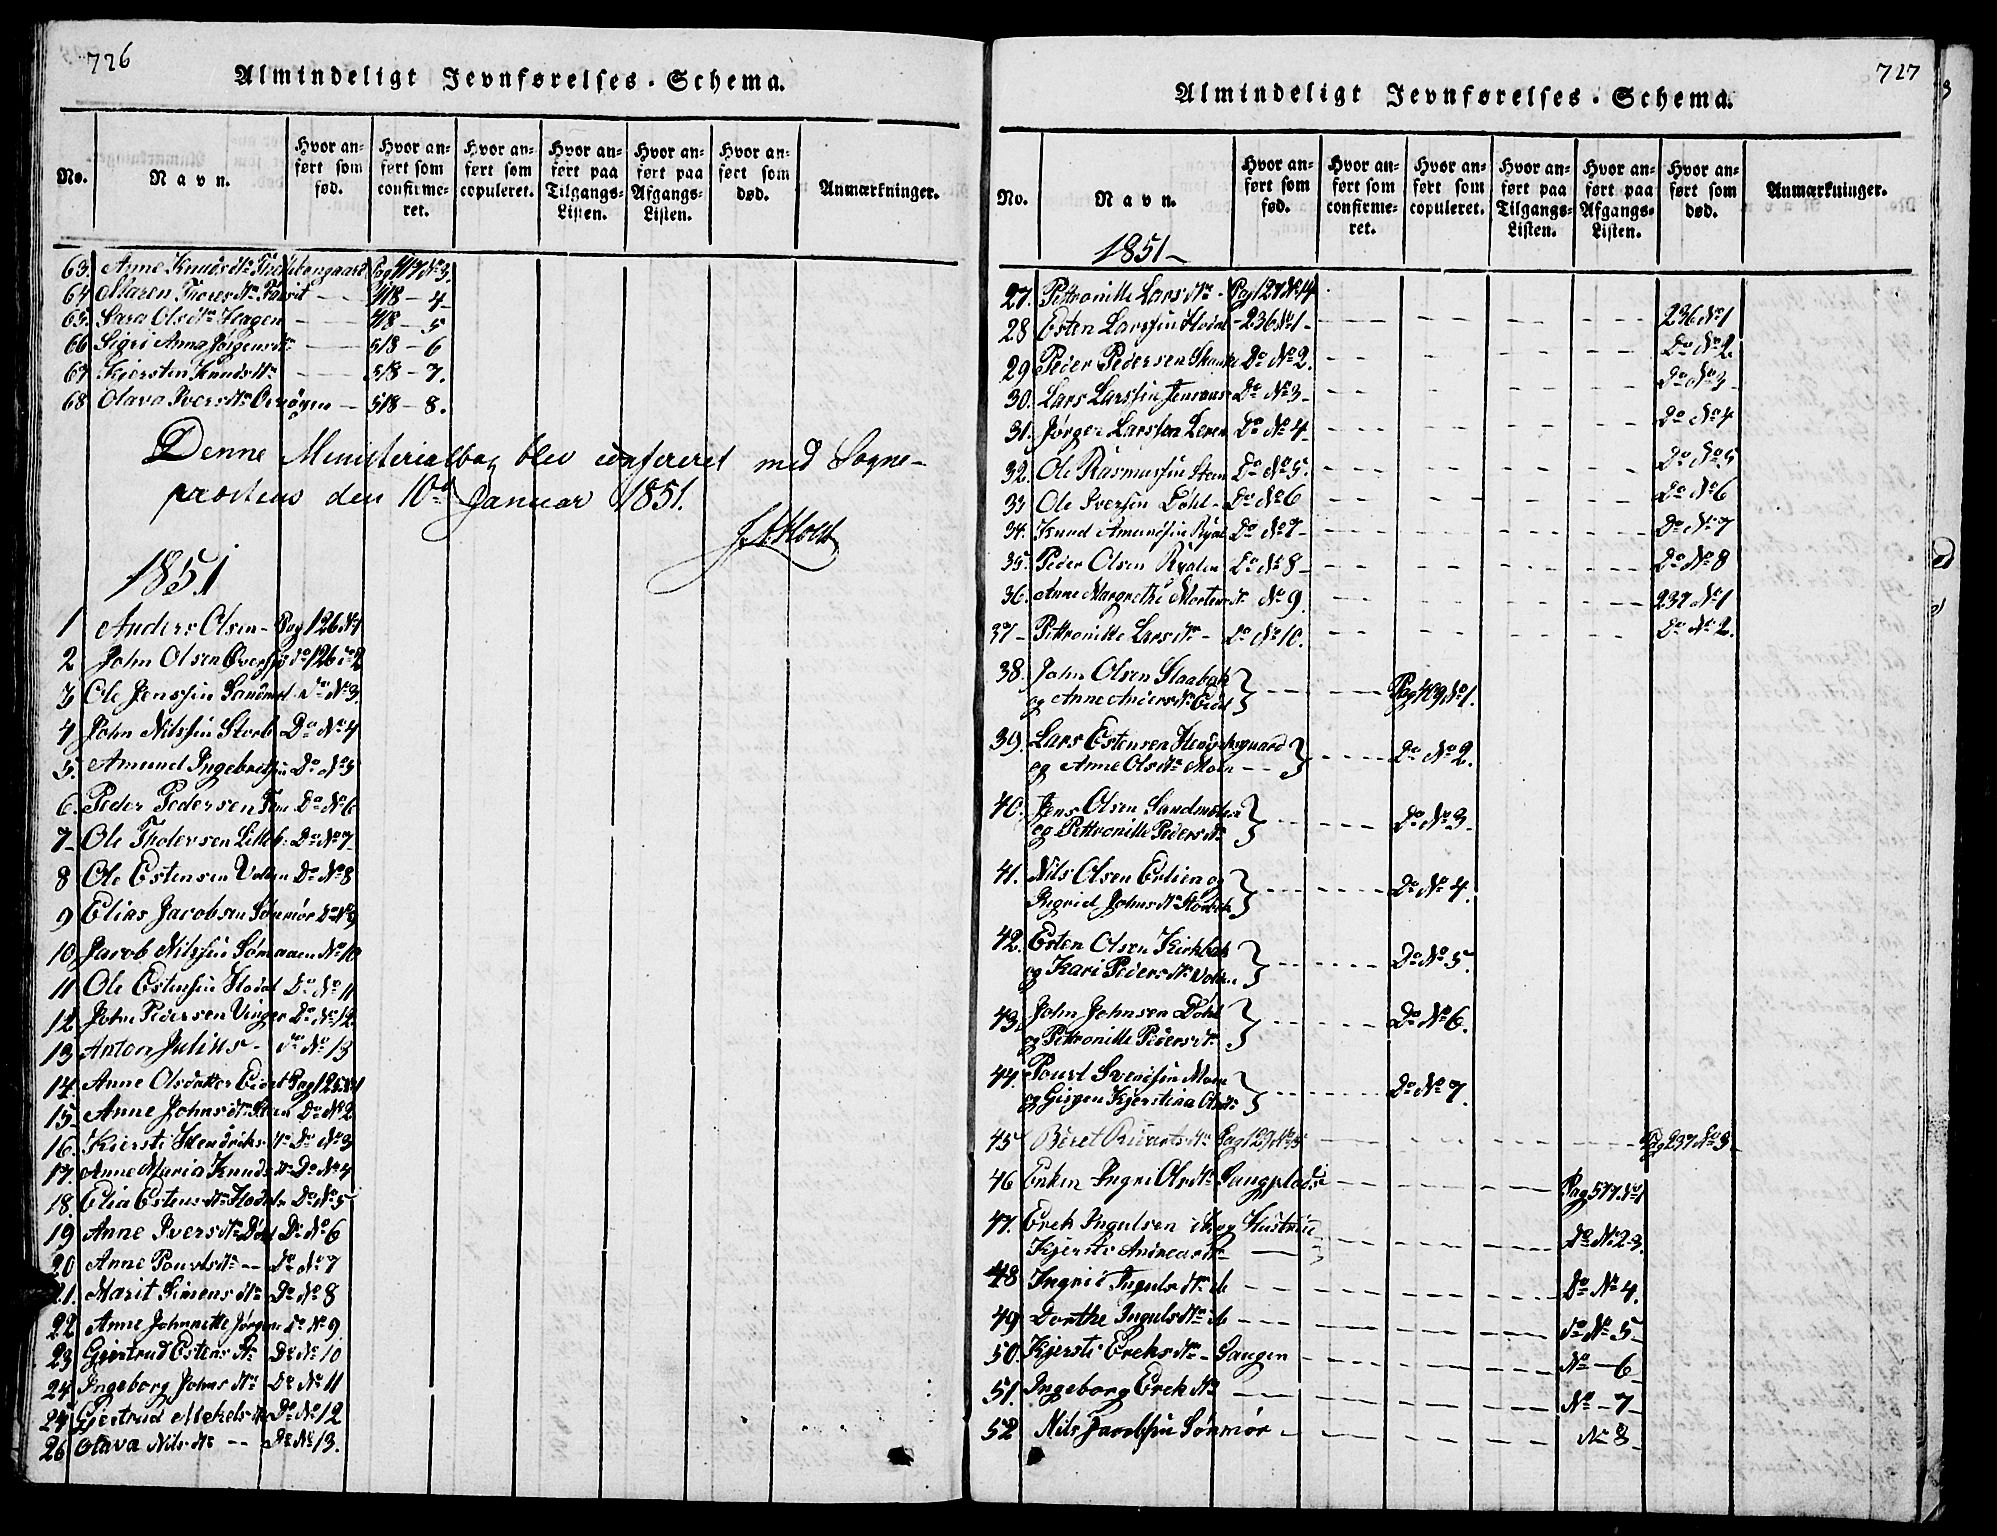 726
Almindeligt Jevnførelses-Schema.
No. Navn. Hvor anført som fød. Hvor anført som confirmeret. Hvor anført som copuleret. Hvor anført paa Tilgangs-Listen. Hvor anført paa Afgangs-Listen. Hvor anført som død. Anmærkninger.
63. Anne Knudsdtr Pag 417 No 3.
64 Maren 418 - 4
65. Sara Olsdtr Hagen 418 - 5
66 Sigri Anna Jörgensdtr 518 - 6
67 Kjersten Knudsdtr 518 - 7.
68 Olava Iversdtr 518 - 8.
Denne Ministerialbog blev confereret med Sogne-
præstens den 10de Januar 1851.
1851
1 Anders Olsen - Pag 126 No 1
2 John Olsen do 126 No 2
3 Ole Jenssen do No 3.
4 John Nilssen Storb Do No 4
5. Amund Ingebretsen Do No 5
6. Peder Pedersen Do No 6
7 Ole Tholersen Do No 7
8 Ole Estensen Volden Do No 8
9 Elias Jacobsen Sønmör Do No 9
10 Jacob Nilssen No 10
11 Ole Estensen Hodal Do No 11
12. John Pedersen Vingen Do No 12.
13 Anton Julius - Do No 13
14. Anne Olsdatter Eidet Pag 125 No 1
15. Anne Johnsdtr Steen Do No 2
16. Kiersti Hendriksdtr Do No 3
17. Anne Maria Knudsdtr Do No 4
18. Elia Estensdtr Hodal Do No 5
19 Anne Iversdtr Döhl Do No 6
20 Anne Poulsdtr - Do No 7
21. Marit Simensdtr Do No 8
22 Anne Johnette Jörgens Do No 9
23 Gjertrud Estensdtr Do No 10
24 Ingeborg Johnsdtr Do No 11
24 Gjertrud Mekelsdtr Do No 12
26 Olava Nilsdtr - Do No 13.
727
Almindeligt Jevnførelses-Schema.
No. Navn. Hvor anført som fød. Hvor anført som confirmeret. Hvor anført som copuleret. Hvor anført paa Tilgangs-Listen. Hvor anført paa Afgangs-Listen. Hvor anført som død. Anmærkninger.
1851
27. Pettronille Larsdtr - Pag 127 No 14
28 Esten Larssen Hodal - 236 No 1 236 No 1
29 Peder Pedersen Do No 2. Do No 2.
30. Lars Larssen Do No 3 Do No 3
31. Jörgen Larssen Do No 4 Do No 4
32. Ole Rasmussen Steen Do No 5. Do No 5
33 Ole Iversen Döhl - Do No 6 Do No 6
34. Knud Amundsen Do No 7 Do No 7
35. Peder Olsen Do No 8 Do No 8
36. Anne Margrethe Mortensdtr No 9. 237 No 1
37 Pettronille Larsdtr - Do No 10. Do No 2.
38. John Olsen Staabak
og Anne Andersdtr Eidet Pag 409 No 1.
39. Lars Estensen
og Anne Olsdtr Moen Do No 2.
40. Jens Olsen
og Pettronille Pedersdtr Do No 3
41. Nils Olsen Erlien og
Ingrid Johnsdtr Do No 4.
42. Esten Olsen Kirkbak
og Kari Pedersdtr Volden Do No 5.
43. John Johnsen Döhl
og Pettronille Pedersdtr Do No 6.
44. Pouvl Svendsen Moen
og Kjerstina Olsdtr Do No 7.
45 Beret Pag 129 No 15 Pag 237 No 3
46 Enken Ingri Olsdtr Pag 577 No 1
47. Erek Ingulsen og Hustrue
Kjersti Andreasdtr Do No 2-3.
48 Ingrid Ingulsdtr Do No 4.
49 Dorthe Ingulsdtr Do No 5
50. Kjersti Ereksdtr - Haugen No - 6
51. Ingeborg Ereksdtr No - 7
52 Nils Jacobsen Sønmör No 8